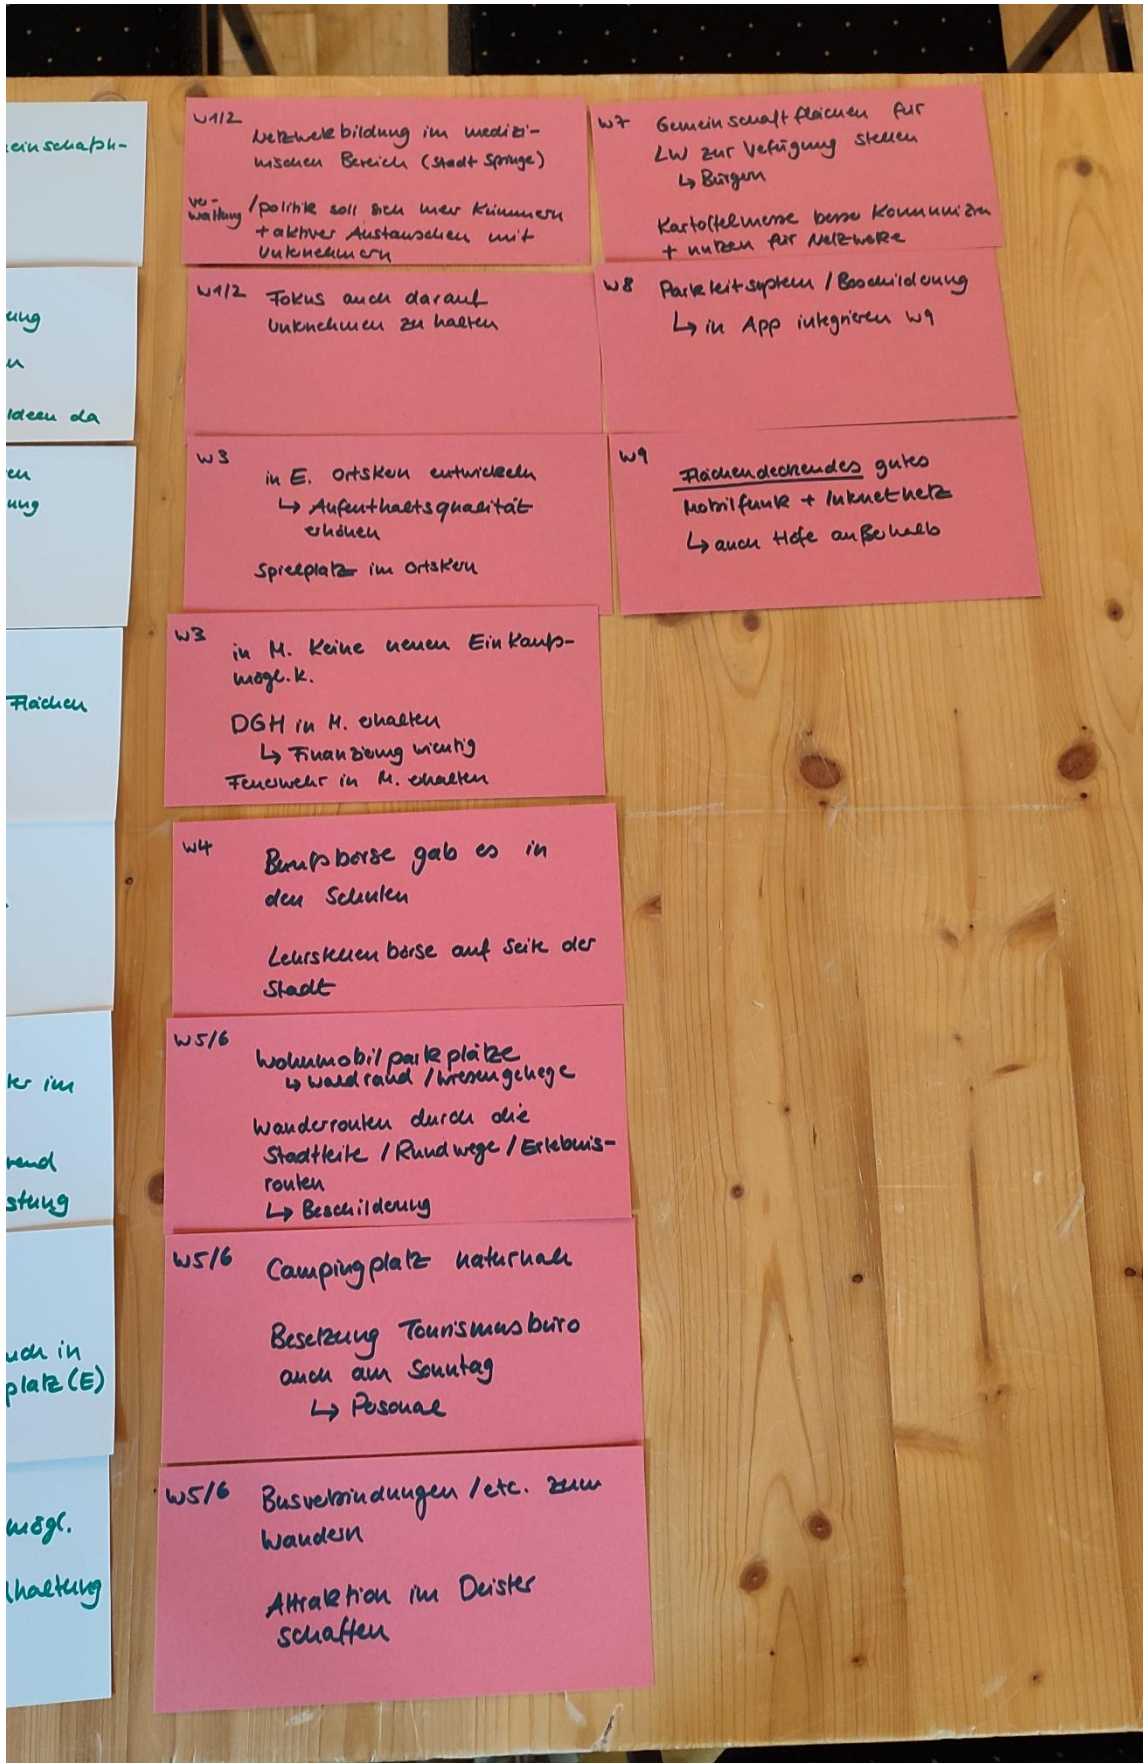 einschafts-
ung
n
Ideen da
en
ung
Flächen
ter im
rend
stung
uch in
platz (E)
mögl.
haltung
W1/2
Netzwerkbildung im medizi-
nischen Bereich (Stadt Springe)
Ver-
waltung /politik soll sich mehr kümmern
+ aktiver Austauschen mit
Unternehmern
W1/2 Fokus auch darauf
Unternehmen zu halten
W3
in E. Ortskern entwickeln
↳ Aufenthaltsqualität
erhöhen
Spielplatz im Ortskern
W3
in M. keine neuen Einkaufs-
mögl.k.
DGH in M. erhalten
↳ Finanzierung wichtig
Feuerwehr in M. erhalten
W4
Berufsbörse gab es in
den Schulen
Lehrstellenbörse auf Seite der
Stadt
W5/6
Wohnmobilparkplätze
↳ Waldrand / Wiesengehege
Wanderrouten durch die
Stadtteile / Rundwege / Erlebnis-
routen
↳ Beschilderung
W5/6 Campingplatz naturnah
Besetzung Tourismusbüro
auch am Sonntag
↳ Personal
W5/6 Busverbindungen / etc. zum
Wandern
Attraktion im Deister
schaffen
W7 Gemeinschaftflächen für
LW zur Verfügung stellen
↳ Bürgern
Kartoffelmesse besser kommunizieren
+ nutzen für Netzwerke
W8 Parkleitsystem / Beschilderung
↳ in App integrieren W9
W9
Flächendeckendes gutes
Mobilfunk + Internetnetz
↳ auch Höfe außerhalb